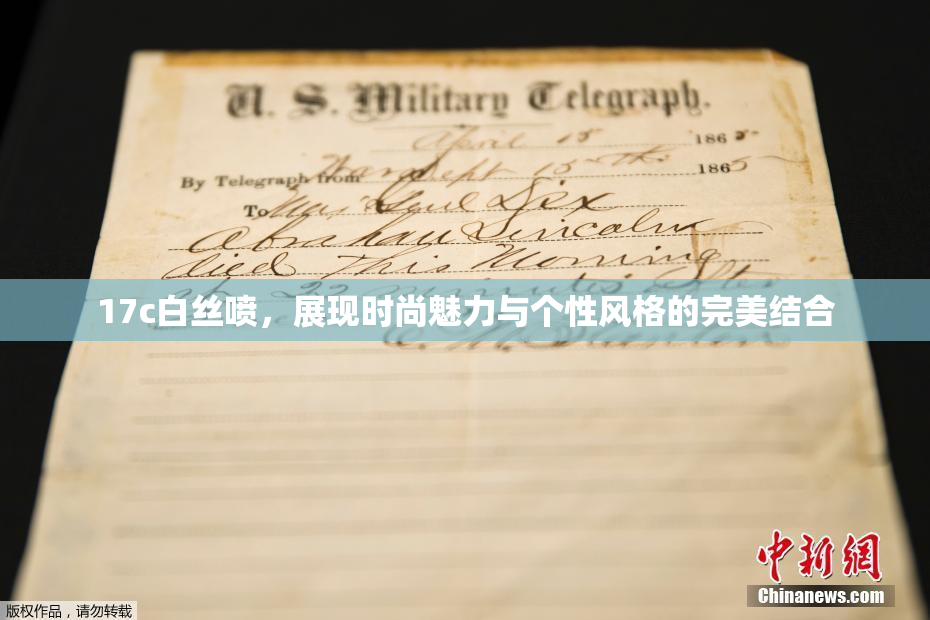 U. S. Military Telegraph.
April 15 1865
By Telegraph from War Dept 15th 1865
To Maj Genl Dix
Abraham Lincoln
died This Morning
22 minutes after
17c白丝喷，展现时尚魅力与个性风格的完美结合
E. M. Stanton
中新网
Chinanews.com
版权作品，请勿转载